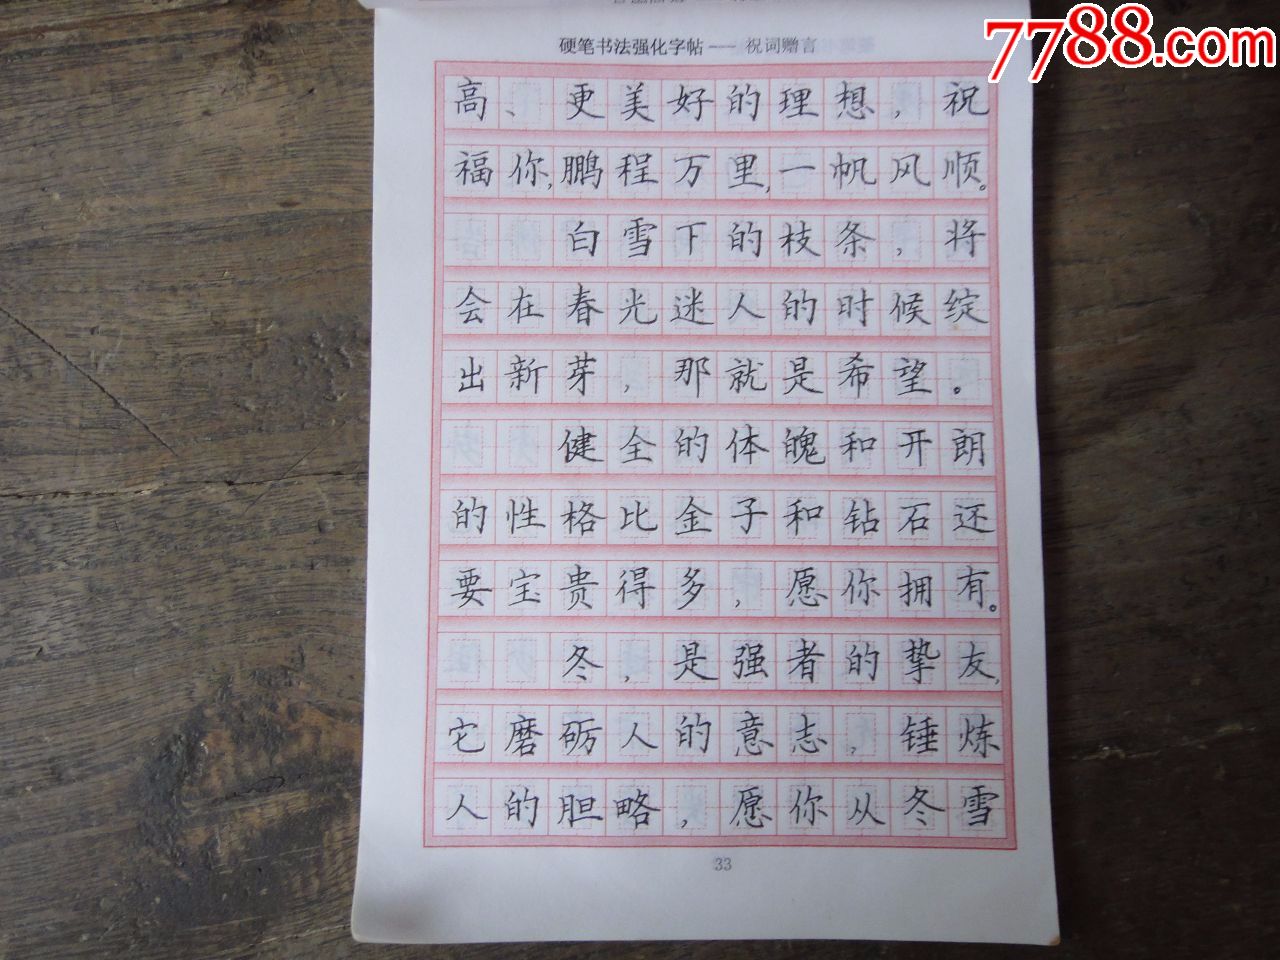 7788.com
硬笔书法强化字帖——祝词赠言
高、更美好的理想，祝
福你，鹏程万里，一帆风顺。
白雪下的枝条，将
会在春光迷人的时候绽
出新芽，那就是希望。
健全的体魄和开朗
的性格比金子和钻石还
要宝贵得多，愿你拥有。
冬，是强者的挚友，
它磨砺人的意志，锤炼
人的胆略，愿你从冬雪
33